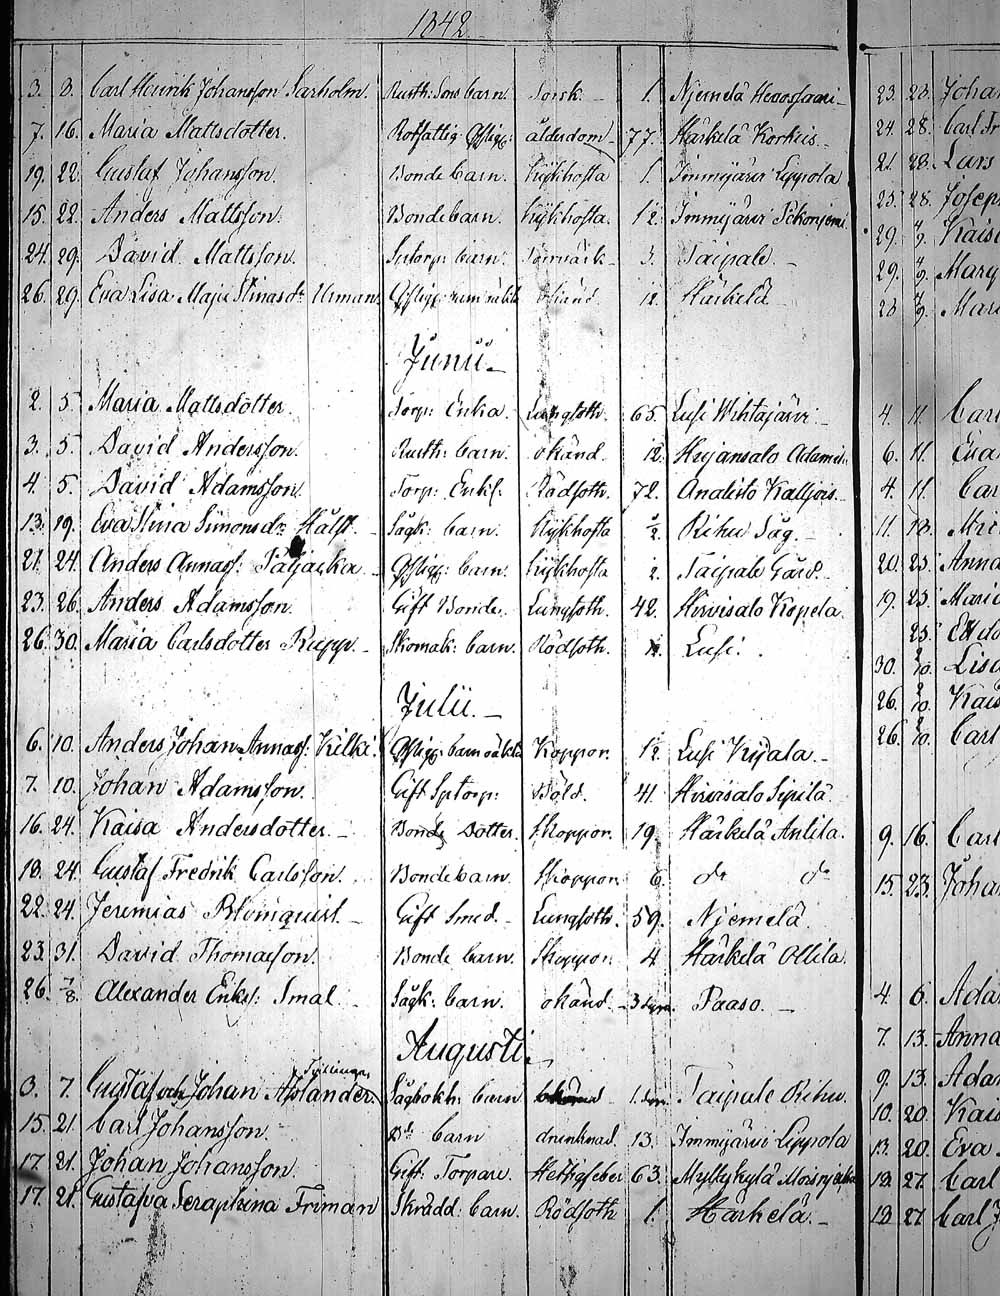 1842
3. 8. Carl Henrik Johansson Sarholm. Rusth: Sons barn. Torsk. 1. Njemelä Hevossaari
7. 16. Maria Mattsdotter. Rotfattig ålderdom 77. Härkelä Korkeis
19. 22. Gustaf Johansson. Bonde barn. kikhosta 1. Immijärvi Lippola
15. 22. Anders Mattsson. Bondebarn. kikhosta. 1/2. Immijärvi
24. 29. David Mattsson. Sptorp: barn. 3. Taipale.
26. 29. Eva Lisa Maja Stinasdr Urman okänd 12. Härkelä
Junii
2. 5. Maria Mattsdotter. Torp: Enka Lungsoth. 65. Lusi
3. 5. David Andersson. Rusth: barn. okänd. 12. Heijansalo Adamila
4. 5. David Adamsson. Torp: Enkl: Rödsoth. 72. Anaksto
13. 19. Eva Stina Simonsdr Hälft. Sågk: barn. Kikhosta 3/2. Rihu Såg.
21. 24. Anders Annas: barn. kikhosta 2. Taipale Gård.
23. 26. Anders Adamsson. Gift Bonde. Lungsoth. 42. Hirvisalo Kopela.
26. 30. Maria Carlsdotter Rupp. Skomak: barn. Rödsoth. Lusi.
Julii.
6. 10. Anders Johan Annas: Kilki barn oäkta Koppor. 1/2. Lusi Kujala.
7. 10. Johan Adamsson. Gift Sptorp: Böld. 41. Hirvisalo Sipilä.
16. 24. Kaisa Andersdotter. Bonde Dotter. Skoppor. 19. Härkelä Anttila.
18. 24. Gustaf Fredrik Carlsson. Bondebarn. Skoppor. 6. do do
22. 24. Jeremias Blomquist. Gift Smed. Lungsoth. 59. Njemelä.
23. 31. David Thomasson. Bonde barn. Skoppor. 4. Härkelä Ollila.
26. 1/8. Alexander Enks: Smal. Sågk: barn. okänd. 3 dgr. Paaso.
Augusti.
Tvillingar
3. 7. Gustaf och Johan Asplander. Sågbokh: barn 1. Taipale Rihu.
15. 21. Carl Johansson. Bd barn drunknad. 13. Immijärvi Lippola
17. 21. Johan Johansson. Gift. Torpare. Hetsigfeber 63. Myllykylä
17. 21. Gustafva Seraphina Friman Skrädd: barn. Rödsoth 1. Härkelä.
23. 28. Johan
24. 28. Carl Fr
21. 28. Lars
25. 28. Joseph
29. 4/9. Kaisa
29. 4/9. Mary
28 4/9. Mari
4. 11. Carl
6. 11. Eva
4. 11. Car
11. 18.
20. 25. Anna
19. 25. Maria
25.
30. 2/10. Lisa
26. 2/10. Kais
26. 2/10. Carl
9. 16. Carl
15. 23. Johan
4. 6. Ada
7. 13. Anna
9. 13. Adam
10. 20. Kais
13. 20. Eva
18. 27. Carl
18 27 Carl J